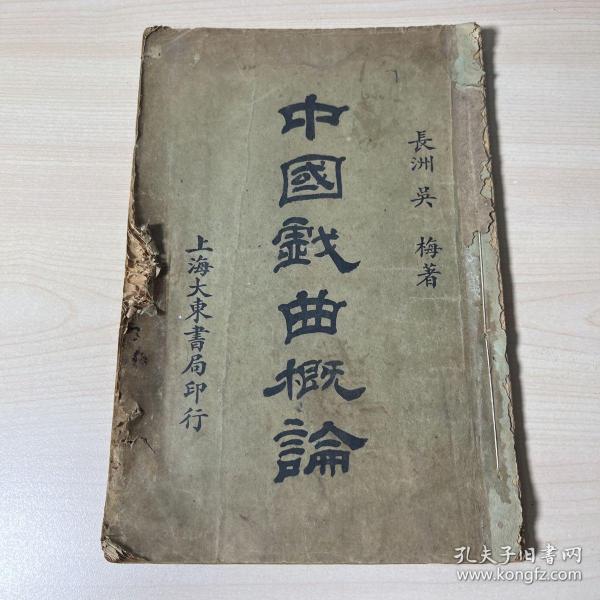 長洲 吳 梅著
中國戲曲概論
上海大東書局印行
孔夫子旧书网
www.kongfz.com